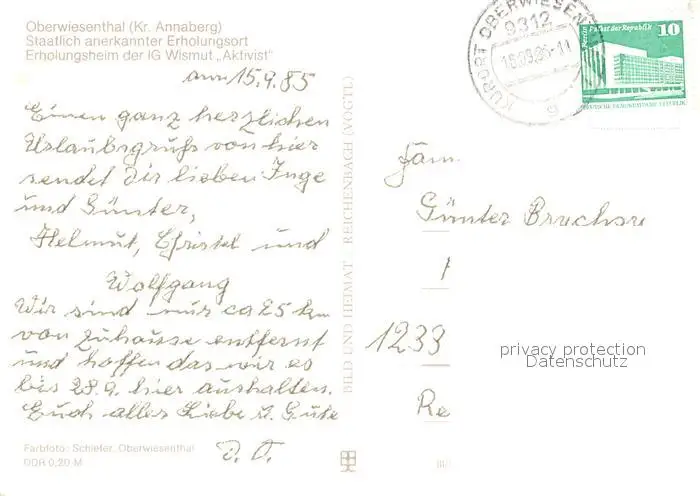 Oberwiesenthal (Kr. Annaberg)
Staatlich anerkannter Erholungsort
Erholungsheim der IG Wismut „Aktivist"
am 15.9.85
Einen ganz herzlichen
Urlaubsgruß von hier
sendet dir lieben Inge
und Günter,
Helmut, Christel und
Wolfgang
Wir sind nur ca 25 km
von zuhause entfernt
und hoffen das wir es
bis 28.9. hier aushalten.
Euch alles Liebe u. Gute
D. O.
Farbfoto: Schiefer, Oberwiesenthal
DDR 0,20 M
BILD UND HEIMAT REICHENBACH (VOGTL)
KURORT OBERWIESEN
9312
16.09.85-11
g
Berlin Palast der Republik
10
DEUTSCHE DEMOKRATISCHE REPUBLIK
Fam
Günter Bruchse
1233
Re
privacy protection
Datenschutz